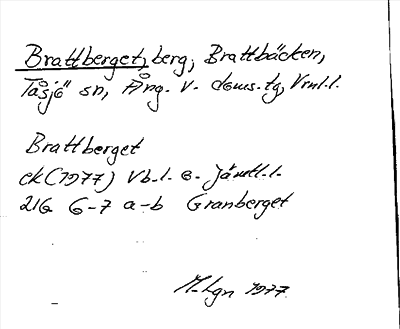 Brattberget, berg, Brattbäcken,
Tåsjö sn, Ång. v. doms.tg, Vrnl.l.
Brattberget
ek (1977) Vb.l. o. Jämtl.l.
21G 6-7 a-b Granberget
1977